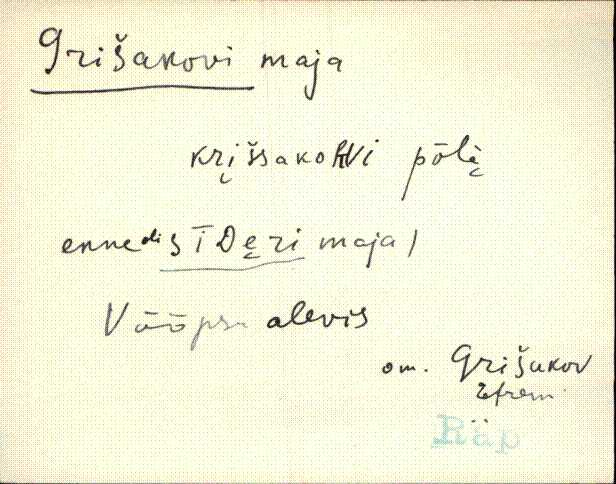 Grišakovi maja
kri̮šsakoƕvi pōlè̮
enne di̮ s̄īDe̮ri maja/
Vööpsu alevis
om. Grišakov
Efrem.
Räp